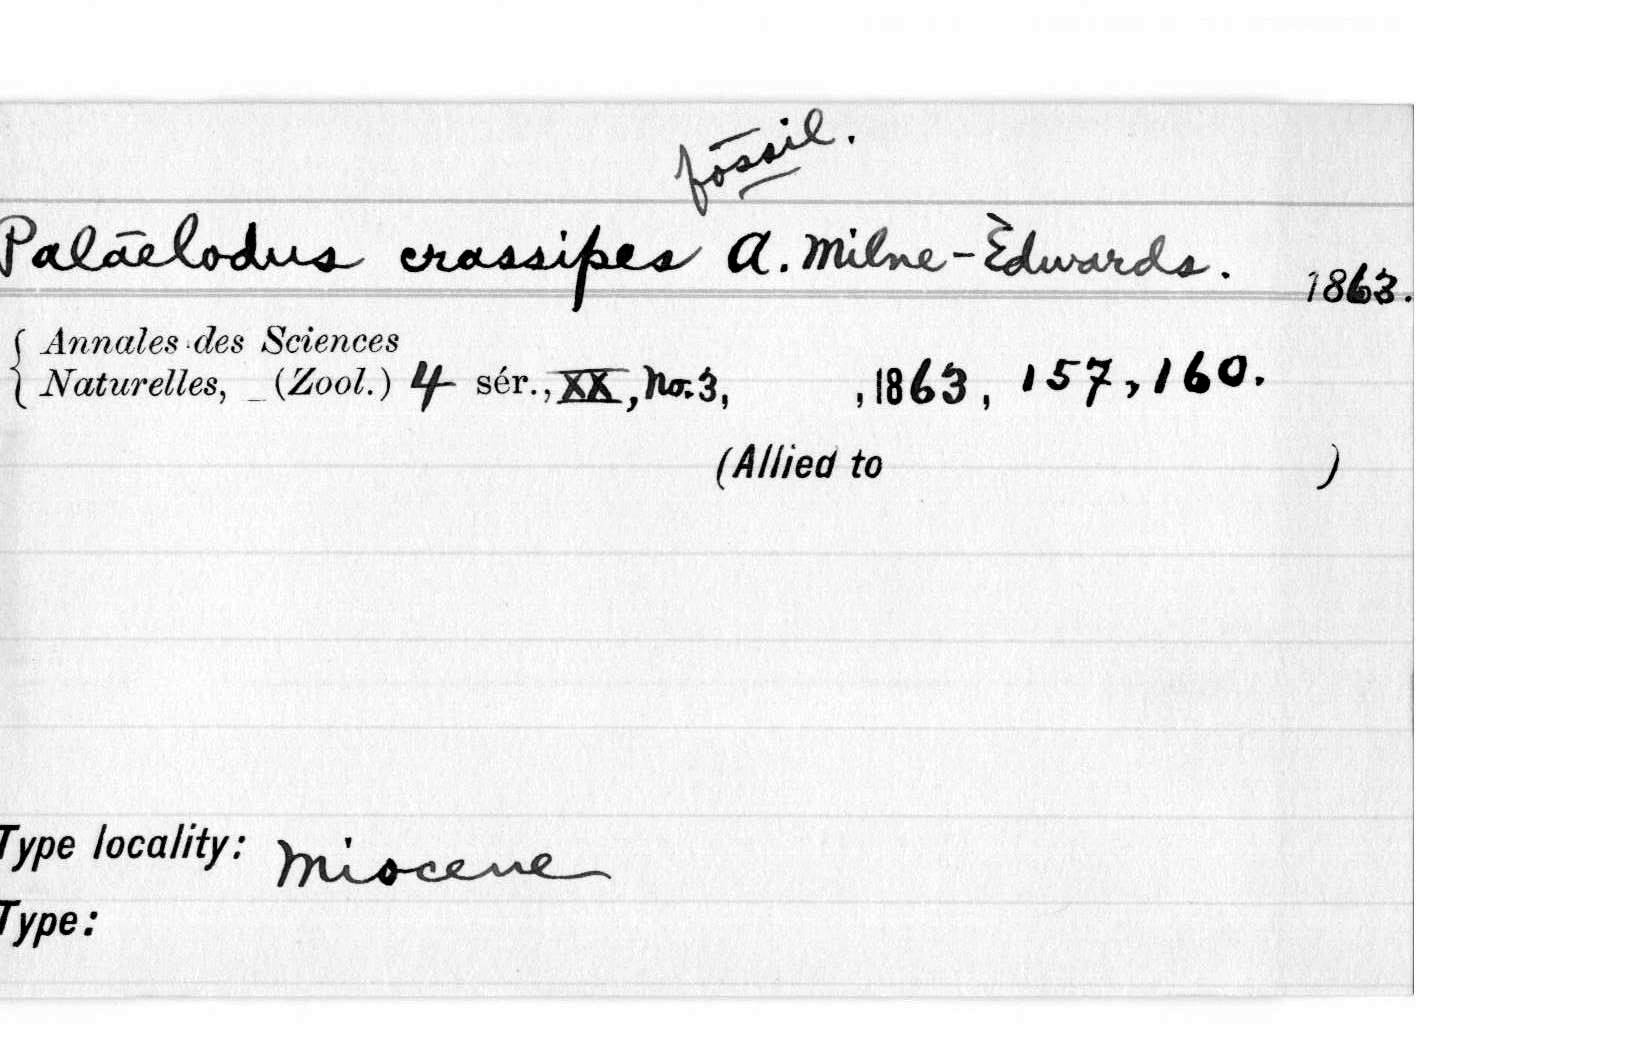 fossil.
Palaelodus crassipes A. Milne-Edwards. 1863.
Annales des Sciences
Naturelles, (Zool.) 4 sér., XX, No. 3, , 1863, 157, 160.
(Allied to )
Type locality: Miocene
Type: